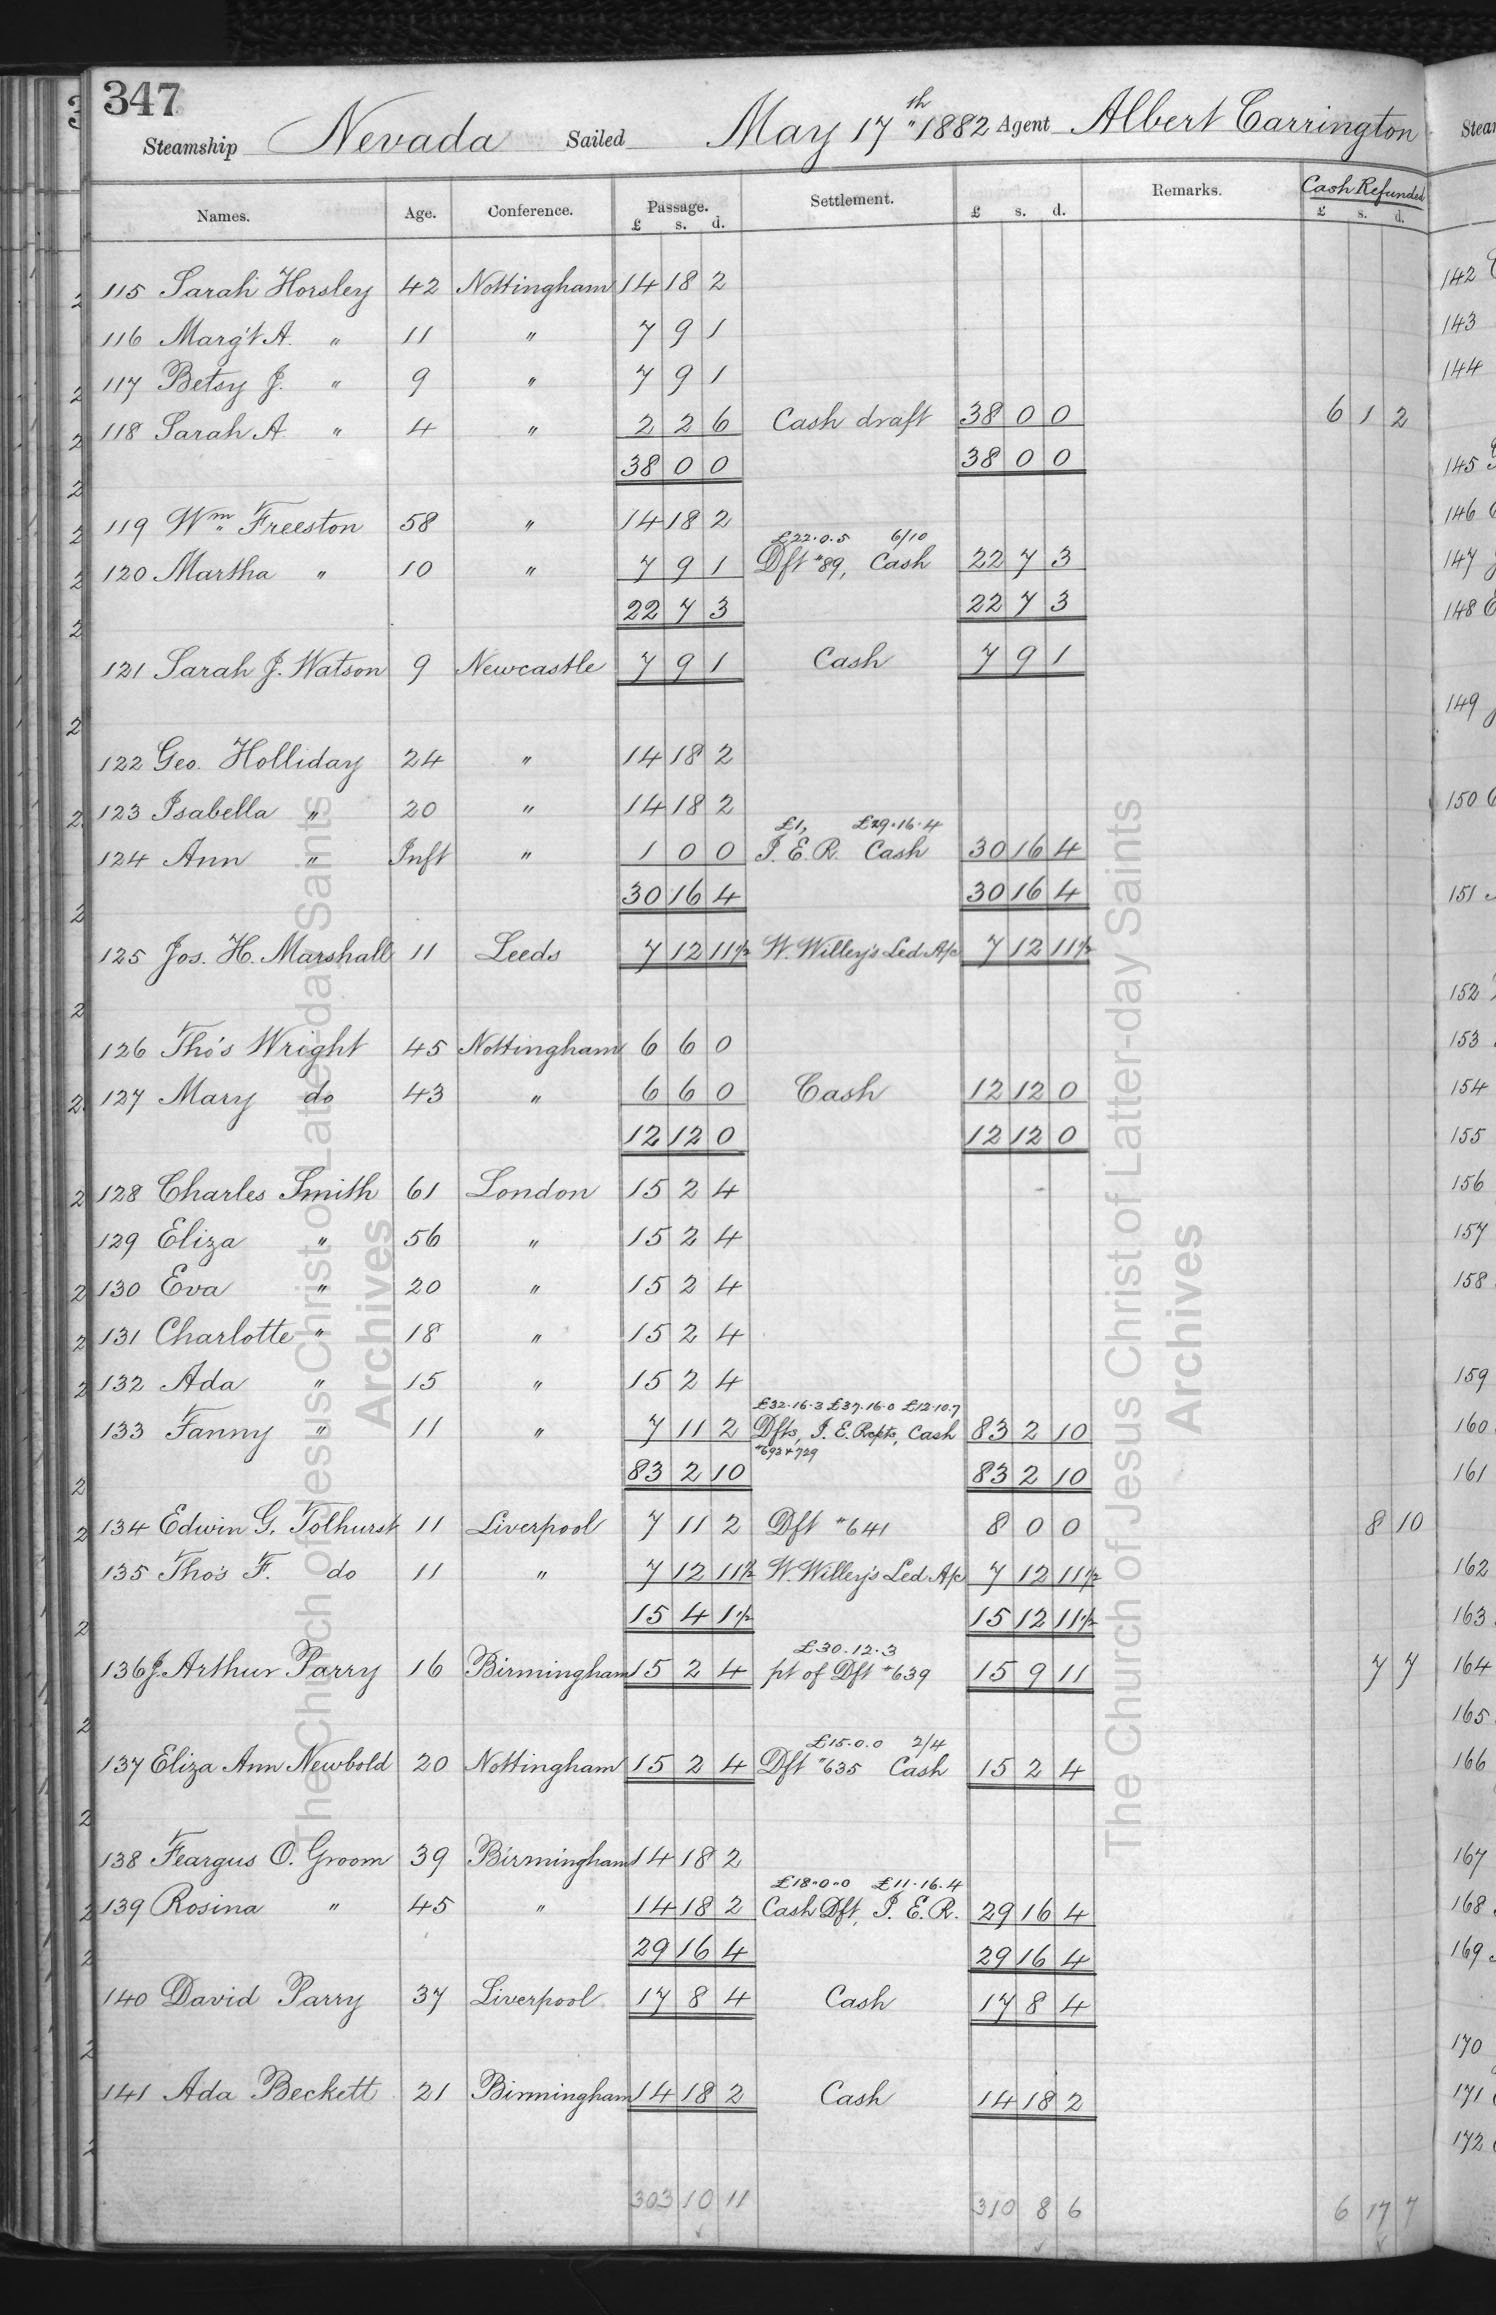 347
Steamship Nevada Sailed May 17th 1882 Agent Albert Carrington
Names. Age. Conference. Passage. Settlement. Remarks. Cash Refunded
£ s. d. £ s. d. £ s. d.
115 Sarah Horsley 42 Nottingham 14 18 2
116 Marg't A. " 11 " 7 9 1
117 Betsy J. " 9 " 7 9 1
118 Sarah A " 4 " 2 2 6 Cash draft 38 0 0 6 1 2
38 0 0 38 0 0
119 Wm Freeston 58 " 14 18 2
£22.0.5 6/10
120 Martha " 10 " 7 9 1 Dft #89, Cash 22 7 3
22 7 3 22 7 3
121 Sarah J. Watson 9 Newcastle 7 9 1 Cash 7 9 1
122 Geo. Holliday 24 " 14 18 2
123 Isabella " 20 " 14 18 2
£1, £29.16.4
124 Ann " Inft " 1 0 0 I. E. R. Cash 30 16 4
30 16 4 30 16 4
125 Jos. H. Marshall 11 Leeds 7 12 11½ W. Willey's Led A/c 7 12 11½
126 Tho's Wright 45 Nottingham 6 6 0
127 Mary do 43 " 6 6 0 Cash 12 12 0
12 12 0 12 12 0
128 Charles Smith 61 London 15 2 4
129 Eliza " 56 " 15 2 4
130 Eva " 20 " 15 2 4
131 Charlotte " 18 " 15 2 4
132 Ada " 15 " 15 2 4
£32.16.3 £37.16.0 £12.10.7
133 Fanny " 11 " 7 11 2 Dfts, I. E. Rcpts, Cash 83 2 10
#693 & 729
83 2 10 83 2 10
134 Edwin G. Tolhurst 11 Liverpool 7 11 2 Dft #641 8 0 0 8 10
135 Tho's F. do 11 " 7 12 11½ W. Willey's Led A/c 7 12 11½
15 4 1½ 15 12 11½
£30.12.3
136 J. Arthur Parry 16 Birmingham 15 2 4 pt of Dft #639 15 9 11 7 7
£15.0.0 2/4
137 Eliza Ann Newbold 20 Nottingham 15 2 4 Dft #635 Cash 15 2 4
138 Feargus O. Groom 39 Birmingham 14 18 2
£18.0.0 £11.16.4
139 Rosina " 45 " 14 18 2 Cash Dft, I. E. R. 29 16 4
29 16 4 29 16 4
140 David Parry 37 Liverpool 17 8 4 Cash 17 8 4
141 Ada Beckett 21 Birmingham 14 18 2 Cash 14 18 2
303 10 11 310 8 6 6 17 7
The Church of Jesus Christ of Latter-day Saints
Archives
The Church of Jesus Christ of Latter-day Saints
Archives
Stea
142
143
144
145
146
147
148
149
150
151
152
153
154
155
156
157
158
159
160
161
162
163
164
165
166
167
168
169
170
171
172